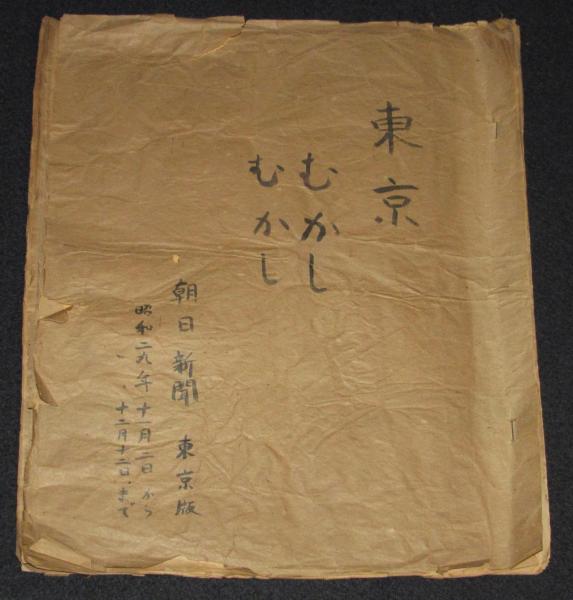 東京
むかし
むかし
朝日新聞 東京版
昭和二九年十一月二日から
〃 〃 十二月十二日まで